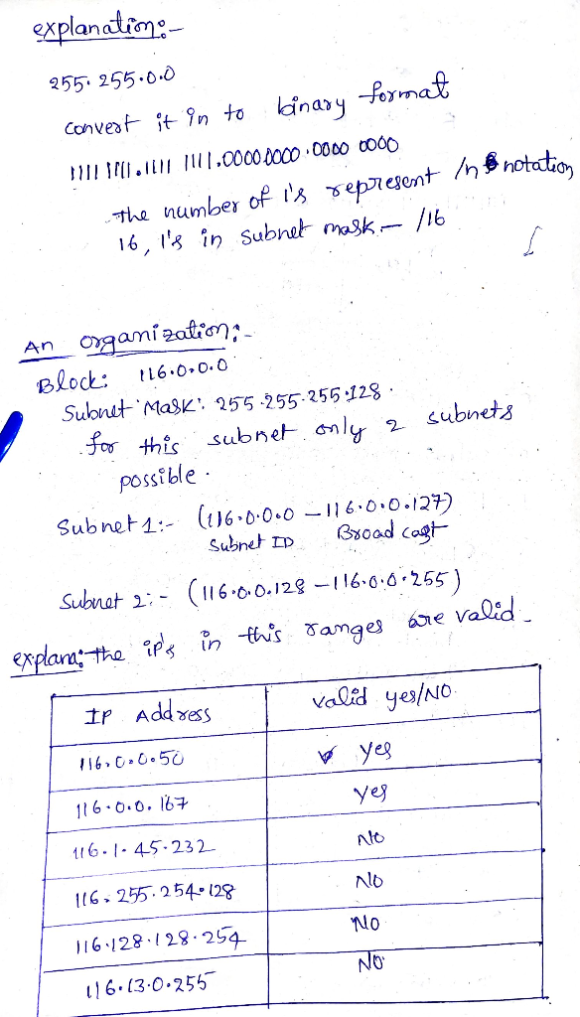 explanation:-
255.255.0.0
convert it in to binary format
1111 1111.1111 1111.0000 0000.0000 0000
The number of 1's represent /n notation
16, 1's in subnet mask - /16
An organization:-
Block: 116.0.0.0
Subnet Mask: 255.255.255.128.
for this subnet only 2 subnets
possible.
Subnet 1:- (116.0.0.0 - 116.0.0.127)
Subnet ID Broad cast
Subnet 2:- (116.0.0.128 - 116.0.0.255)
explana: the ip's in this ranges are valid.
IP Address valid yes/NO.
116.0.0.50 yes
116.0.0.167 yes
116.1.45.232 No
116.255.254.128 No
116.128.128.254 No
116.13.0.255 No